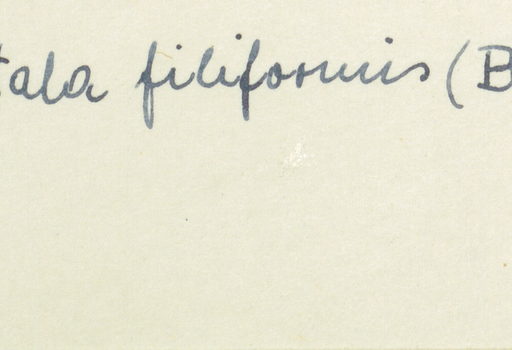 tala filiformis (B